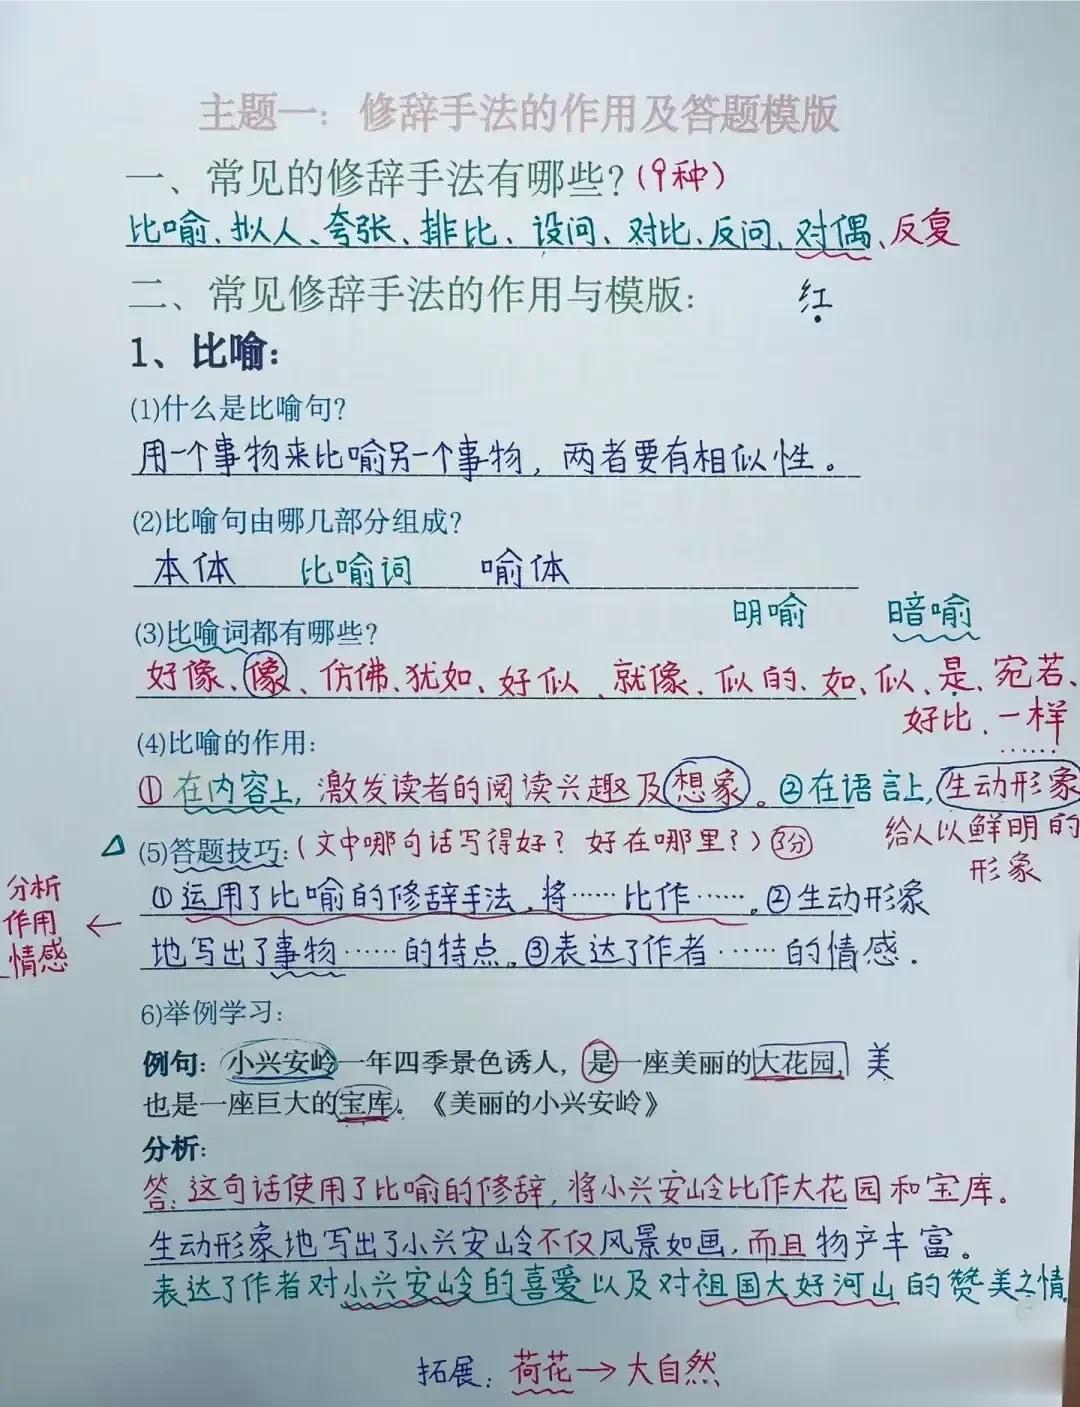 主题一：修辞手法的作用及答题模版
一、常见的修辞手法有哪些?(9种)
比喻、拟人、夸张、排比、设问、对比、反问、对偶、反复
二、常见修辞手法的作用与模版: 红
1、比喻:
(1)什么是比喻句?
用一个事物来比喻另一个事物，两者要有相似性。
(2)比喻句由哪几部分组成?
本体 比喻词 喻体
明喻 暗喻
(3)比喻词都有哪些?
好像、像、仿佛、犹如、好似、就像、似的、如、似、是、宛若、
好比、一样
(4)比喻的作用:
①在内容上,激发读者的阅读兴趣及想象。②在语言上,生动形象
给人以鲜明的
形象
△(5)答题技巧:(文中哪句话写得好？好在哪里？)③分
分析
作用
情感
←
①运用了比喻的修辞手法,将……比作……。②生动形象
地写出了事物……的特点。③表达了作者……的情感.
6)举例学习:
例句：小兴安岭一年四季景色诱人，是一座美丽的大花园， 美
也是一座巨大的宝库。《美丽的小兴安岭》
分析:
答:这句话使用了比喻的修辞,将小兴安岭比作大花园和宝库。
生动形象地写出了小兴安岭不仅风景如画,而且物产丰富。
表达了作者对小兴安岭的喜爱以及对祖国大好河山的赞美之情
拓展：荷花→大自然